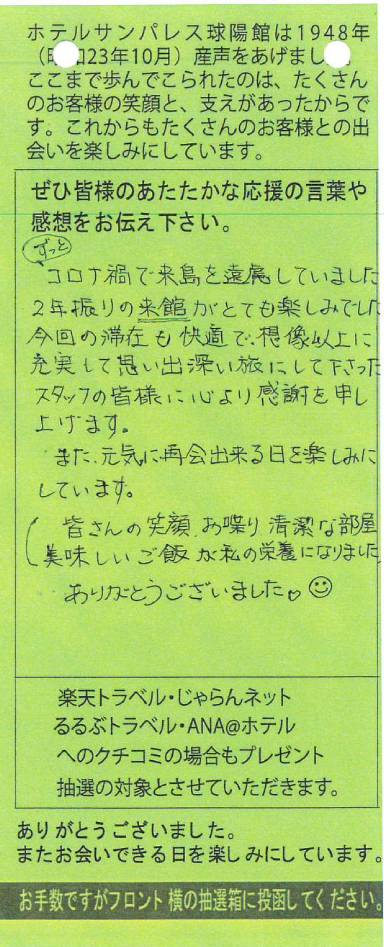 ホテルサンパレス球陽館は1948年
(昭和23年10月)産声をあげまし
ここまで歩んでこられたのは、たくさん
のお客様の笑顔と、支えがあったからで
す。これからもたくさんのお客様との出
会いを楽しみにしています。
ぜひ皆様のあたたかな応援の言葉や
感想をお伝え下さい。
ずっと
コロナ禍で来島を遠慮していました
2年振りの来館がとても楽しみでした
今回の滞在も快適で、想像以上に
充実して思い出深い旅にして下さった
スタッフの皆様に心より感謝を申し
上げます。
また、元気に再会出来る日を楽しみに
しています。
皆さんの笑顔、お喋り 清潔な部屋
美味しいご飯が私の栄養になりました
ありがとうございました。☺
楽天トラベル・じゃらんネット
るるぶトラベル・ANA@ホテル
へのクチコミの場合もプレゼント
抽選の対象とさせていただきます。
ありがとうございました。
またお会いできる日を楽しみにしています。
お手数ですがフロント横の抽選箱に投函してください。